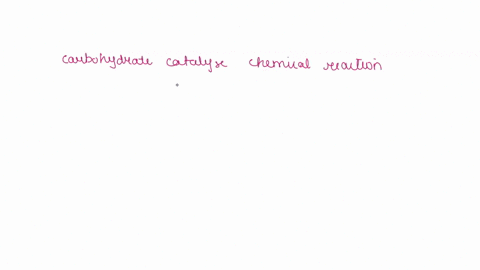 carbohydrate catalyse chemical reaction